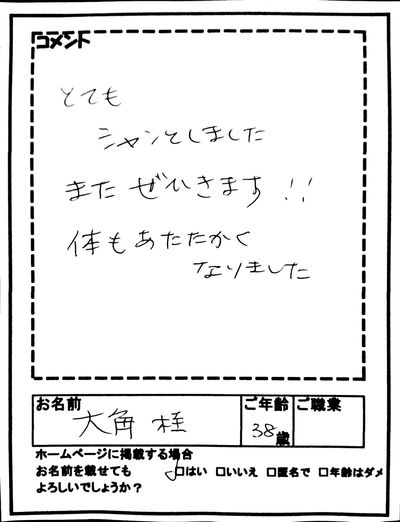 コメント
とても
シャンとしました
また ぜひきます!!
体もあたたかく
なりました
お名前
大角 桂
ご年齢
38歳
ご職業
ホームページに掲載する場合
お名前を載せても
よろしいでしょうか?
☑はい □いいえ □匿名で □年齢はダメ